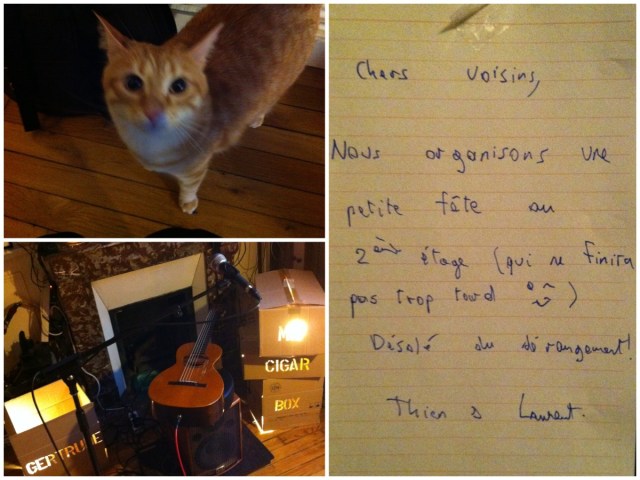 GERTRUDE
MR
CIGAR
BOX
Chers voisins,
Nous organisons une
petite fête au
2ème étage (qui ne finira
pas trop tard )
Désolé du dérangement!
Thien & Laurent.